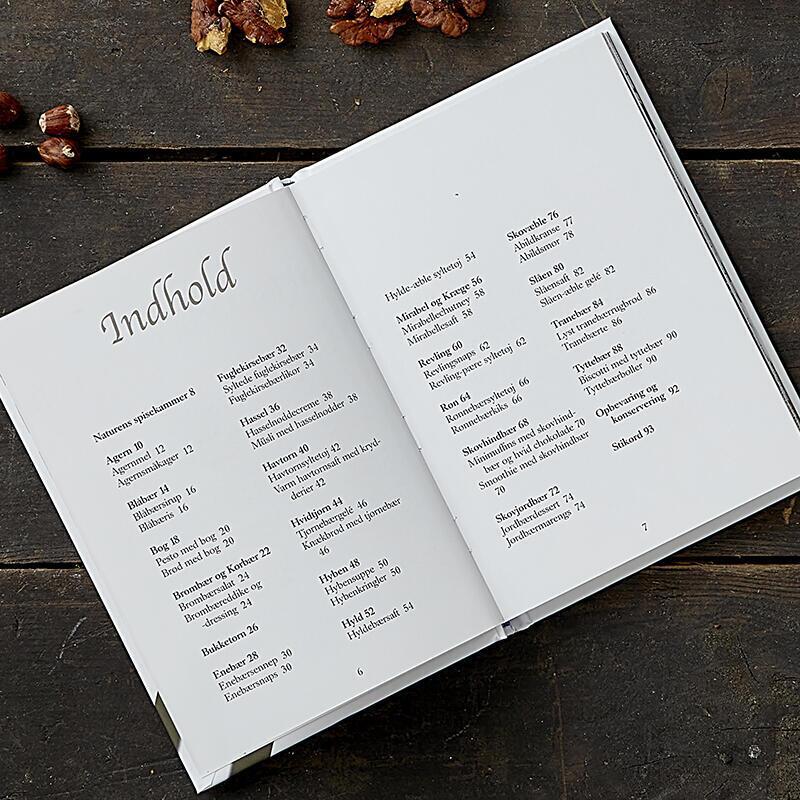 Indhold
Naturens spisekammer 8
Agern 10
Agernmel 12
Agernsmåkager 12
Blåbær 14
Blåbærsirup 16
Blåbæris 16
Bog 18
Pesto med bog 20
Brød med bog 20
Brombær og Korbær 22
Brombærsalat 24
Brombæreddike og
-dressing 24
Bukketorn 26
Enebær 28
Enebærsennep 30
Enebærsnaps 30
Fuglekirsebær 32
Syltede fuglekirsebær 34
Fuglekirsebærlikør 34
Hassel 36
Hasselnøddecreme 38
Müsli med hasselnødder 38
Havtorn 40
Havtornsyltetøj 42
Varm havtornsaft med kryd-
derier 42
Hvidtjørn 44
Tjørnebærgelé 46
Knekbrød med tjørnebær
46
Hyben 48
Hybensuppe 50
Hybenkringler 50
Hyld 52
Hyldebærsaft 54
6
Hylde-æble syltetøj 54
Mirabel og Kræge 56
Mirabellechutney 58
Mirabellesaft 58
Revling 60
Revlingsnaps 62
Revling-pære syltetøj 62
Røn 64
Rønnebærsyltetøj 66
Rønnebærkiks 66
Skovhindbær 68
Minimuffins med skovhind-
bær og hvid chokolade 70
Smoothie med skovhindbær
70
Skovjordbær 72
Jordbærdessert 74
Jordbærmarengs 74
Skovæble 76
Abildkranse 77
Abildsmør 78
Slåen 80
Slåensaft 82
Slåen-æble gelé 82
Tranebær 84
Lyst tranebærrugbrød 86
Tranebærte 86
Tyttebær 88
Biscotti med tyttebær 90
Tyttebærboller 90
Opbevaring og
konservering 92
Stikord 93
7